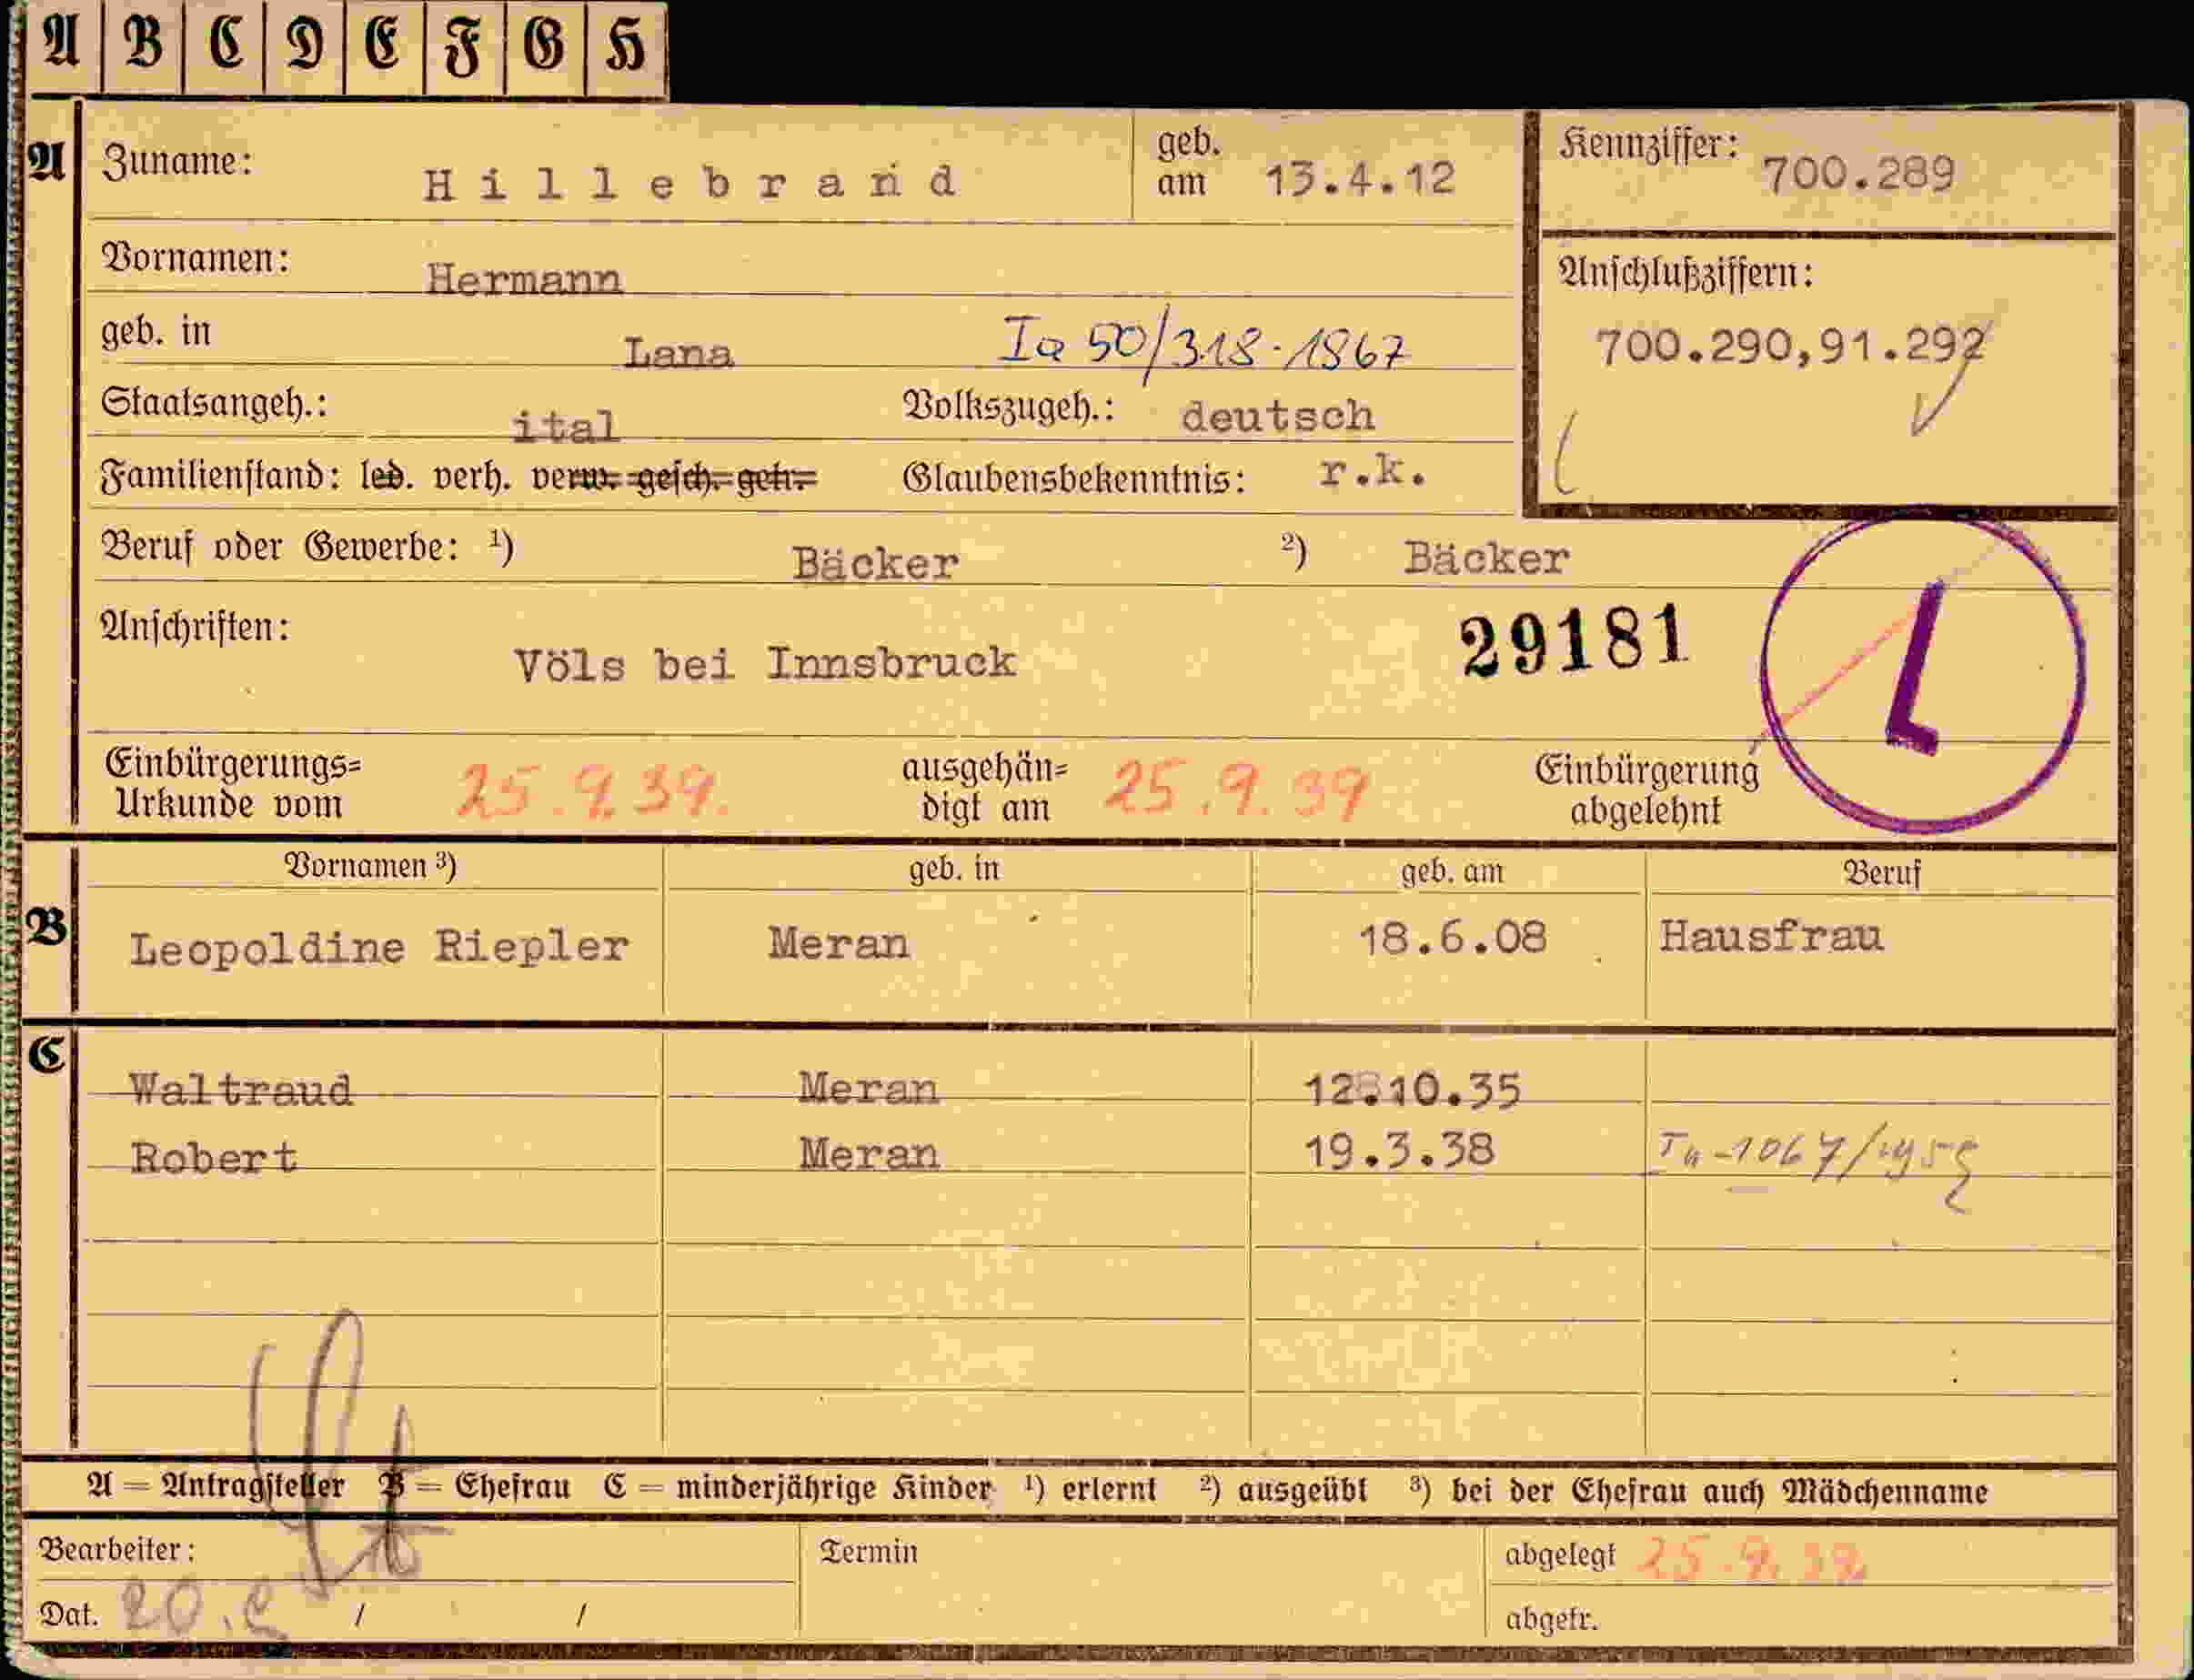 A B C D E F G H
A Zuname: Hillebrand geb. am 13.4.12 Kennziffer: 700.289
Vornamen: Hermann Anschlußziffern:
geb. in Lana Ia 50/318-1867 700.290,91.292
Staatsangeh.: ital Volkszugeh.: deutsch
Familienstand: led. verh. verw. gesch. getr. Glaubensbekenntnis: r.k.
Beruf oder Gewerbe: ¹) Bäcker ²) Bäcker
Anschriften: 29181 L
Völs bei Innsbruck
Einbürgerungs= ausgehän= Einbürgerung
Urkunde vom 25.9.39. digt am 25.9.39 abgelehnt
Vornamen ³) geb. in geb. am Beruf
B Leopoldine Riepler Meran 18.6.08 Hausfrau
C
Waltraud Meran 12.10.35
Robert Meran 19.3.38
A = Antragsteller B = Ehefrau C = minderjährige Kinder ¹) erlernt ²) ausgeübt ³) bei der Ehefrau auch Mädchenname
Bearbeiter: Termin abgelegt 25.9.39
Dat. 20. / / abgetr.